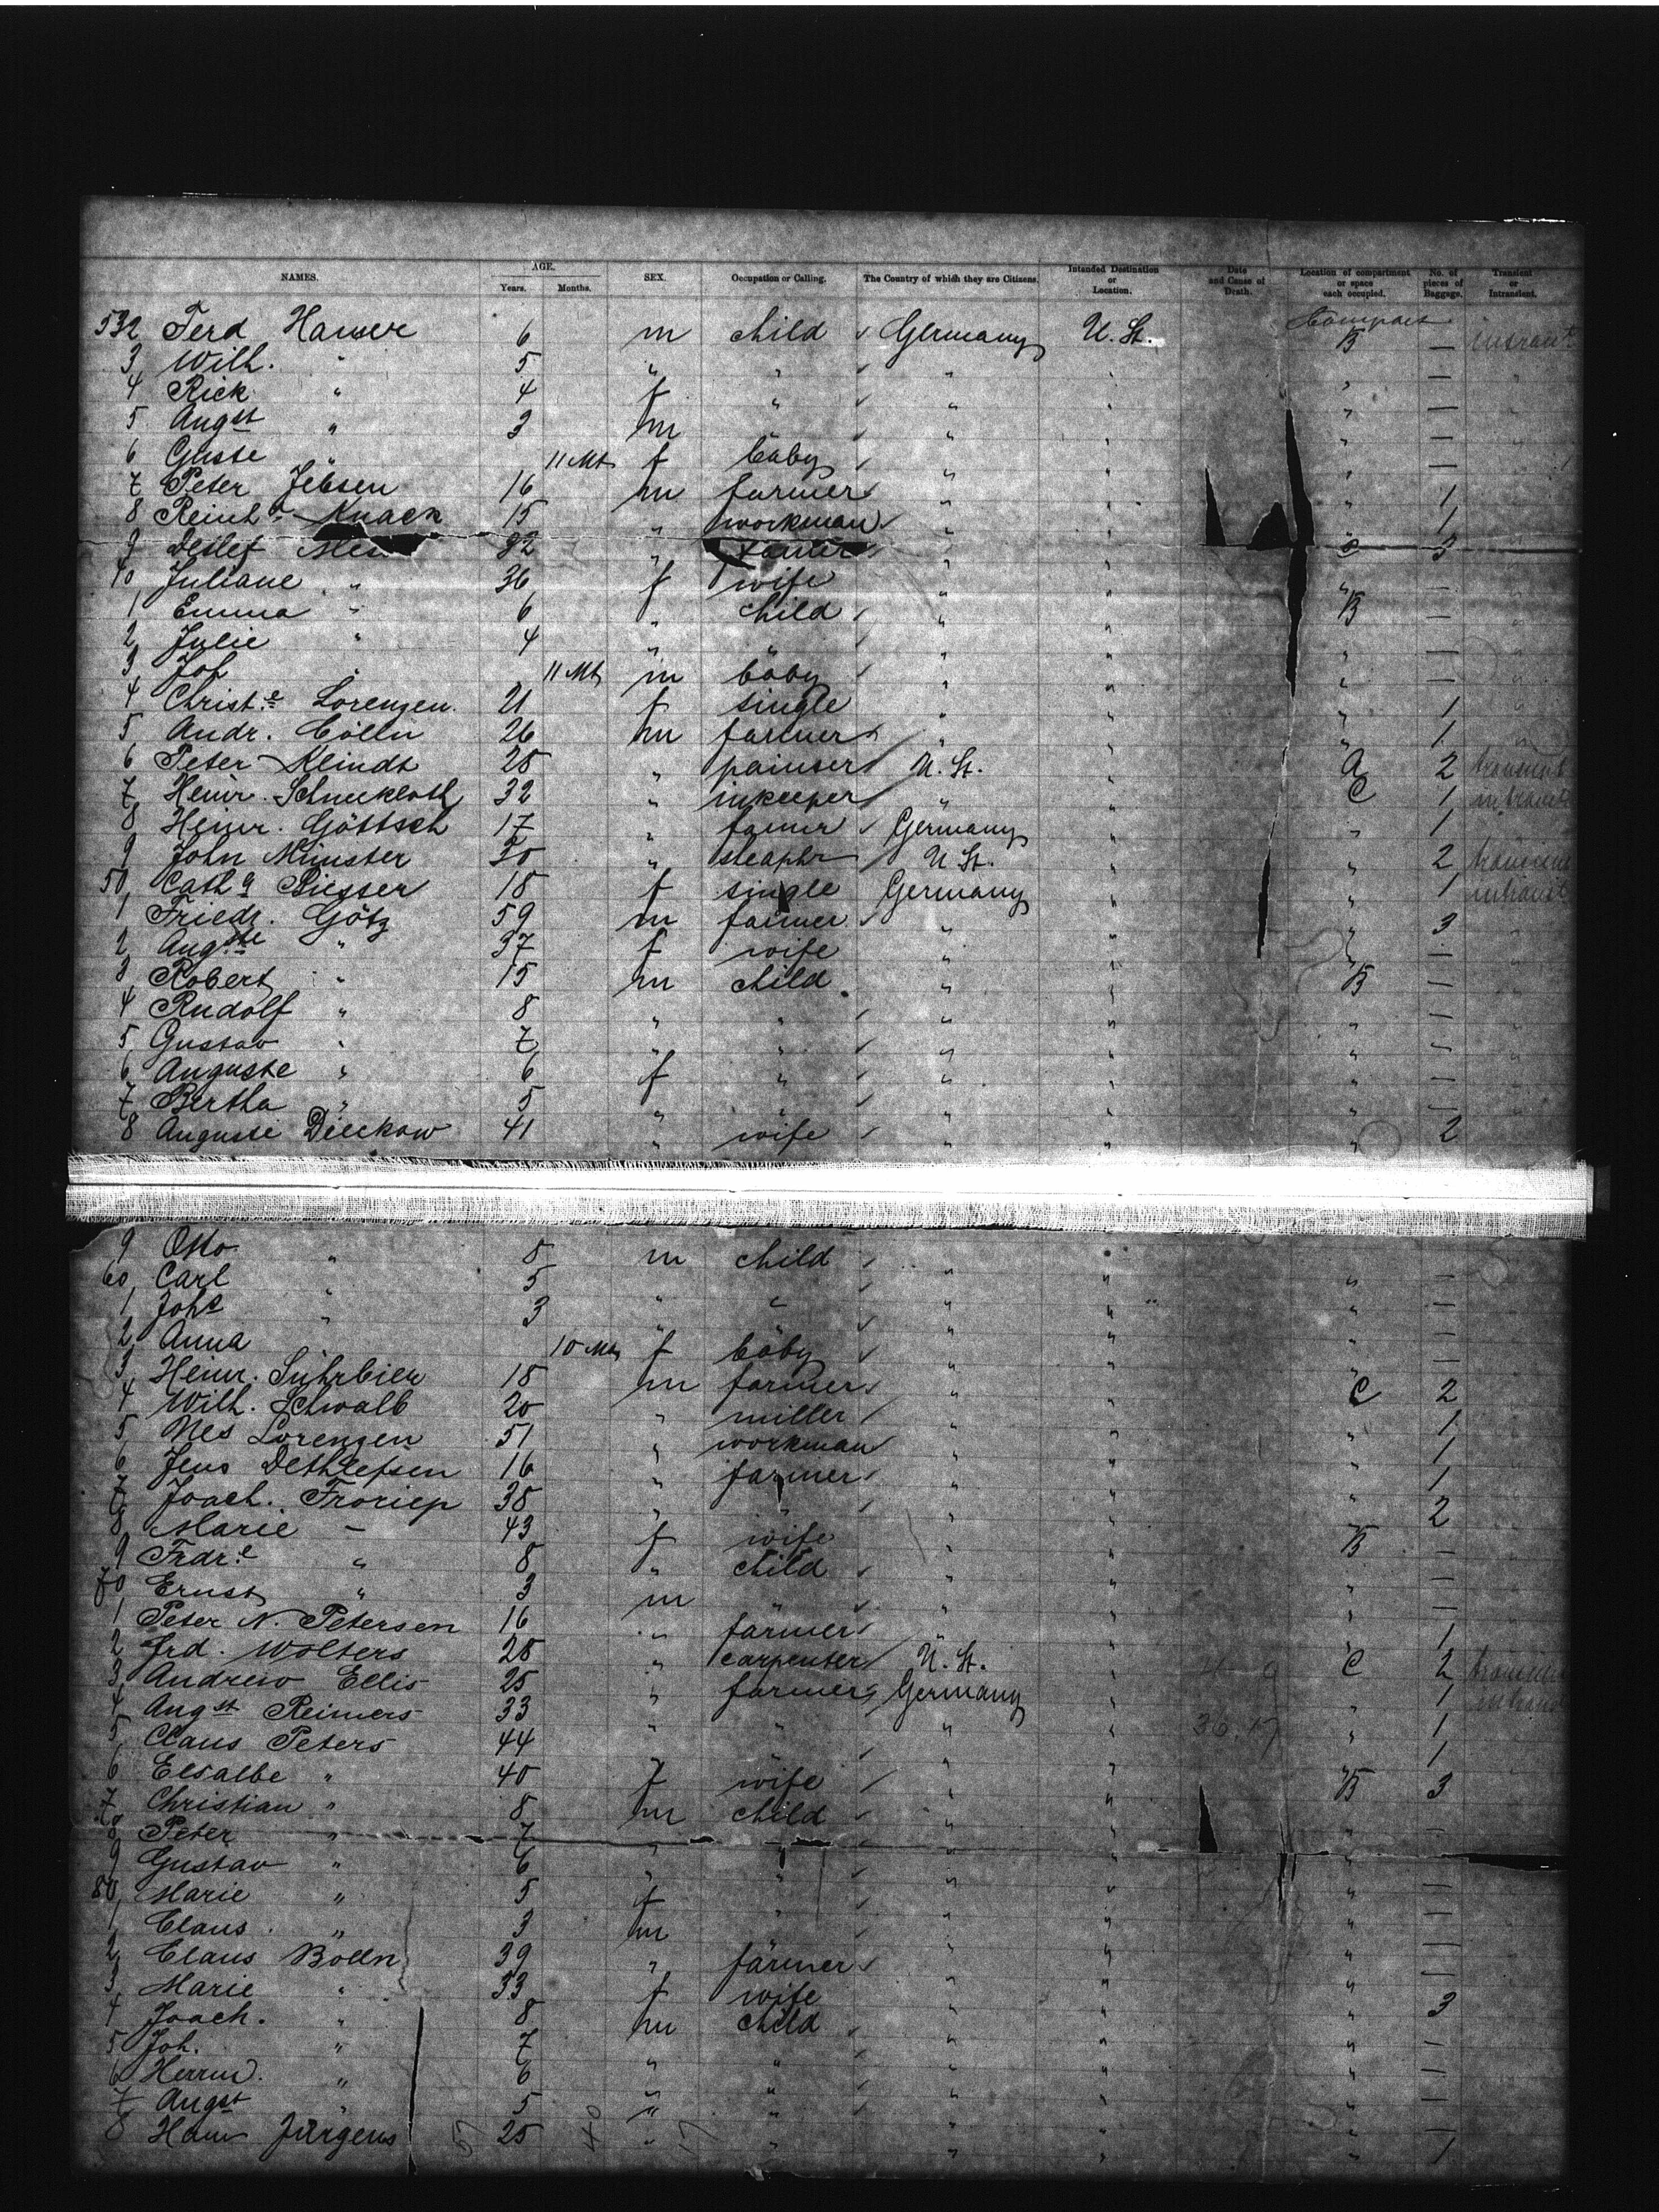 NAMES. AGE. Years. Months. SEX. Occupation or Calling. The Country of which they are Citizens. Intended Destination or Location. Date and Cause of Death. Location of compartment or space each occupied. No. of pieces of Baggage. Transient or Intransient.
Compart
532 Ferd Hamer 6 m child Germany U. St. B — intrans
3 Wilh. " 5 " " " " " —
4 Rick " 4 f " " " " —
5 Augst " 3 m " " " —
6 Guste " 11 Mt f baby " " " —
7 Peter Jebsen 16 m farmer " " " 1
8 Reinh. Knack 15 " workman " " 1
9 Detlef 32 " " 3
40 Juliane " 36 f wife " " " —
1 Emma " 6 " child " " B —
2 Julie " 4 " " " " —
3 Joh " 11 Mt m baby " " " —
4 Christ.e Lorenzen. 21 f single " " " 1
5 Andr. Cölln 26 m farmer " " " 1
6 Peter Kleindt 28 " painter U. St. " A 2 transient
7 Heinr. Schnekloth 32 " inkeeper " " C 1 intransit
8 Heinr. Göttsch 17 " famer Germany " " 1
9 John Münster 30 " U St. " " 2
50 Cath.a 18 f single Germany " " 1
1 Friedr. Götz 59 m farmer " " " 3
2 Augste " 37 f wife " " " —
3 Robert " 15 m child " " B —
4 Rudolf " 8 " " " " " —
5 Gustav " 7 " " " " " —
6 Auguste " 6 f " " " " —
7 Bertha " 5 " " " " " —
8 Auguste Dieckow 41 " wife " " " 2
9 Otto " 8 m child " " " —
60 Carl " 5 " " " —
1 Johs " 3 " " " " " —
2 Anna 10 Mt f baby " " " —
3 Heinr. Sührbier 18 m farmer " " C 2
4 Wilh. Schwalb 20 " miller " " " 1
5 Nes Lorenzen 51 " workman " " " 1
6 Jens Dethlefsen 16 " farmer " " " 1
7 Joach. Froriep 38 " " " " " 2
8 Marie — 43 f wife " " B —
9 Frdr.e " 8 " child " " " —
70 Ernst " 3 m " " " —
1 Peter N. Petersen 16 " farmer " " " 1
2 Frd. Wolters 28 " carpenter U. St. " C 2
3 Andrew Ellis 25 " farmer Germany " " 1
4 Augst Reimers 33 " " " " " 1
5 Claus Peters 44 " " 1
6 Elsalbe " 40 f wife " " B 3
7 Christian " 8 m child " " " —
8 Peter " 7 " " "
9 Gustav " 6 " " " " " —
80 Marie " 5 f " " " " —
1 Claus. " 3 m " " " —
2 Claus Bolln 39 " farmer " " " —
3 Marie " 33 f wife " " " 3
4 Joach. " 8 m child " " " —
5 Joh. " 7 " " " " " —
6 Herm. " 6 " " " " " —
7 Augst " 5 " " " " " —
8 Hans Jürgens 25 " " " " " 1